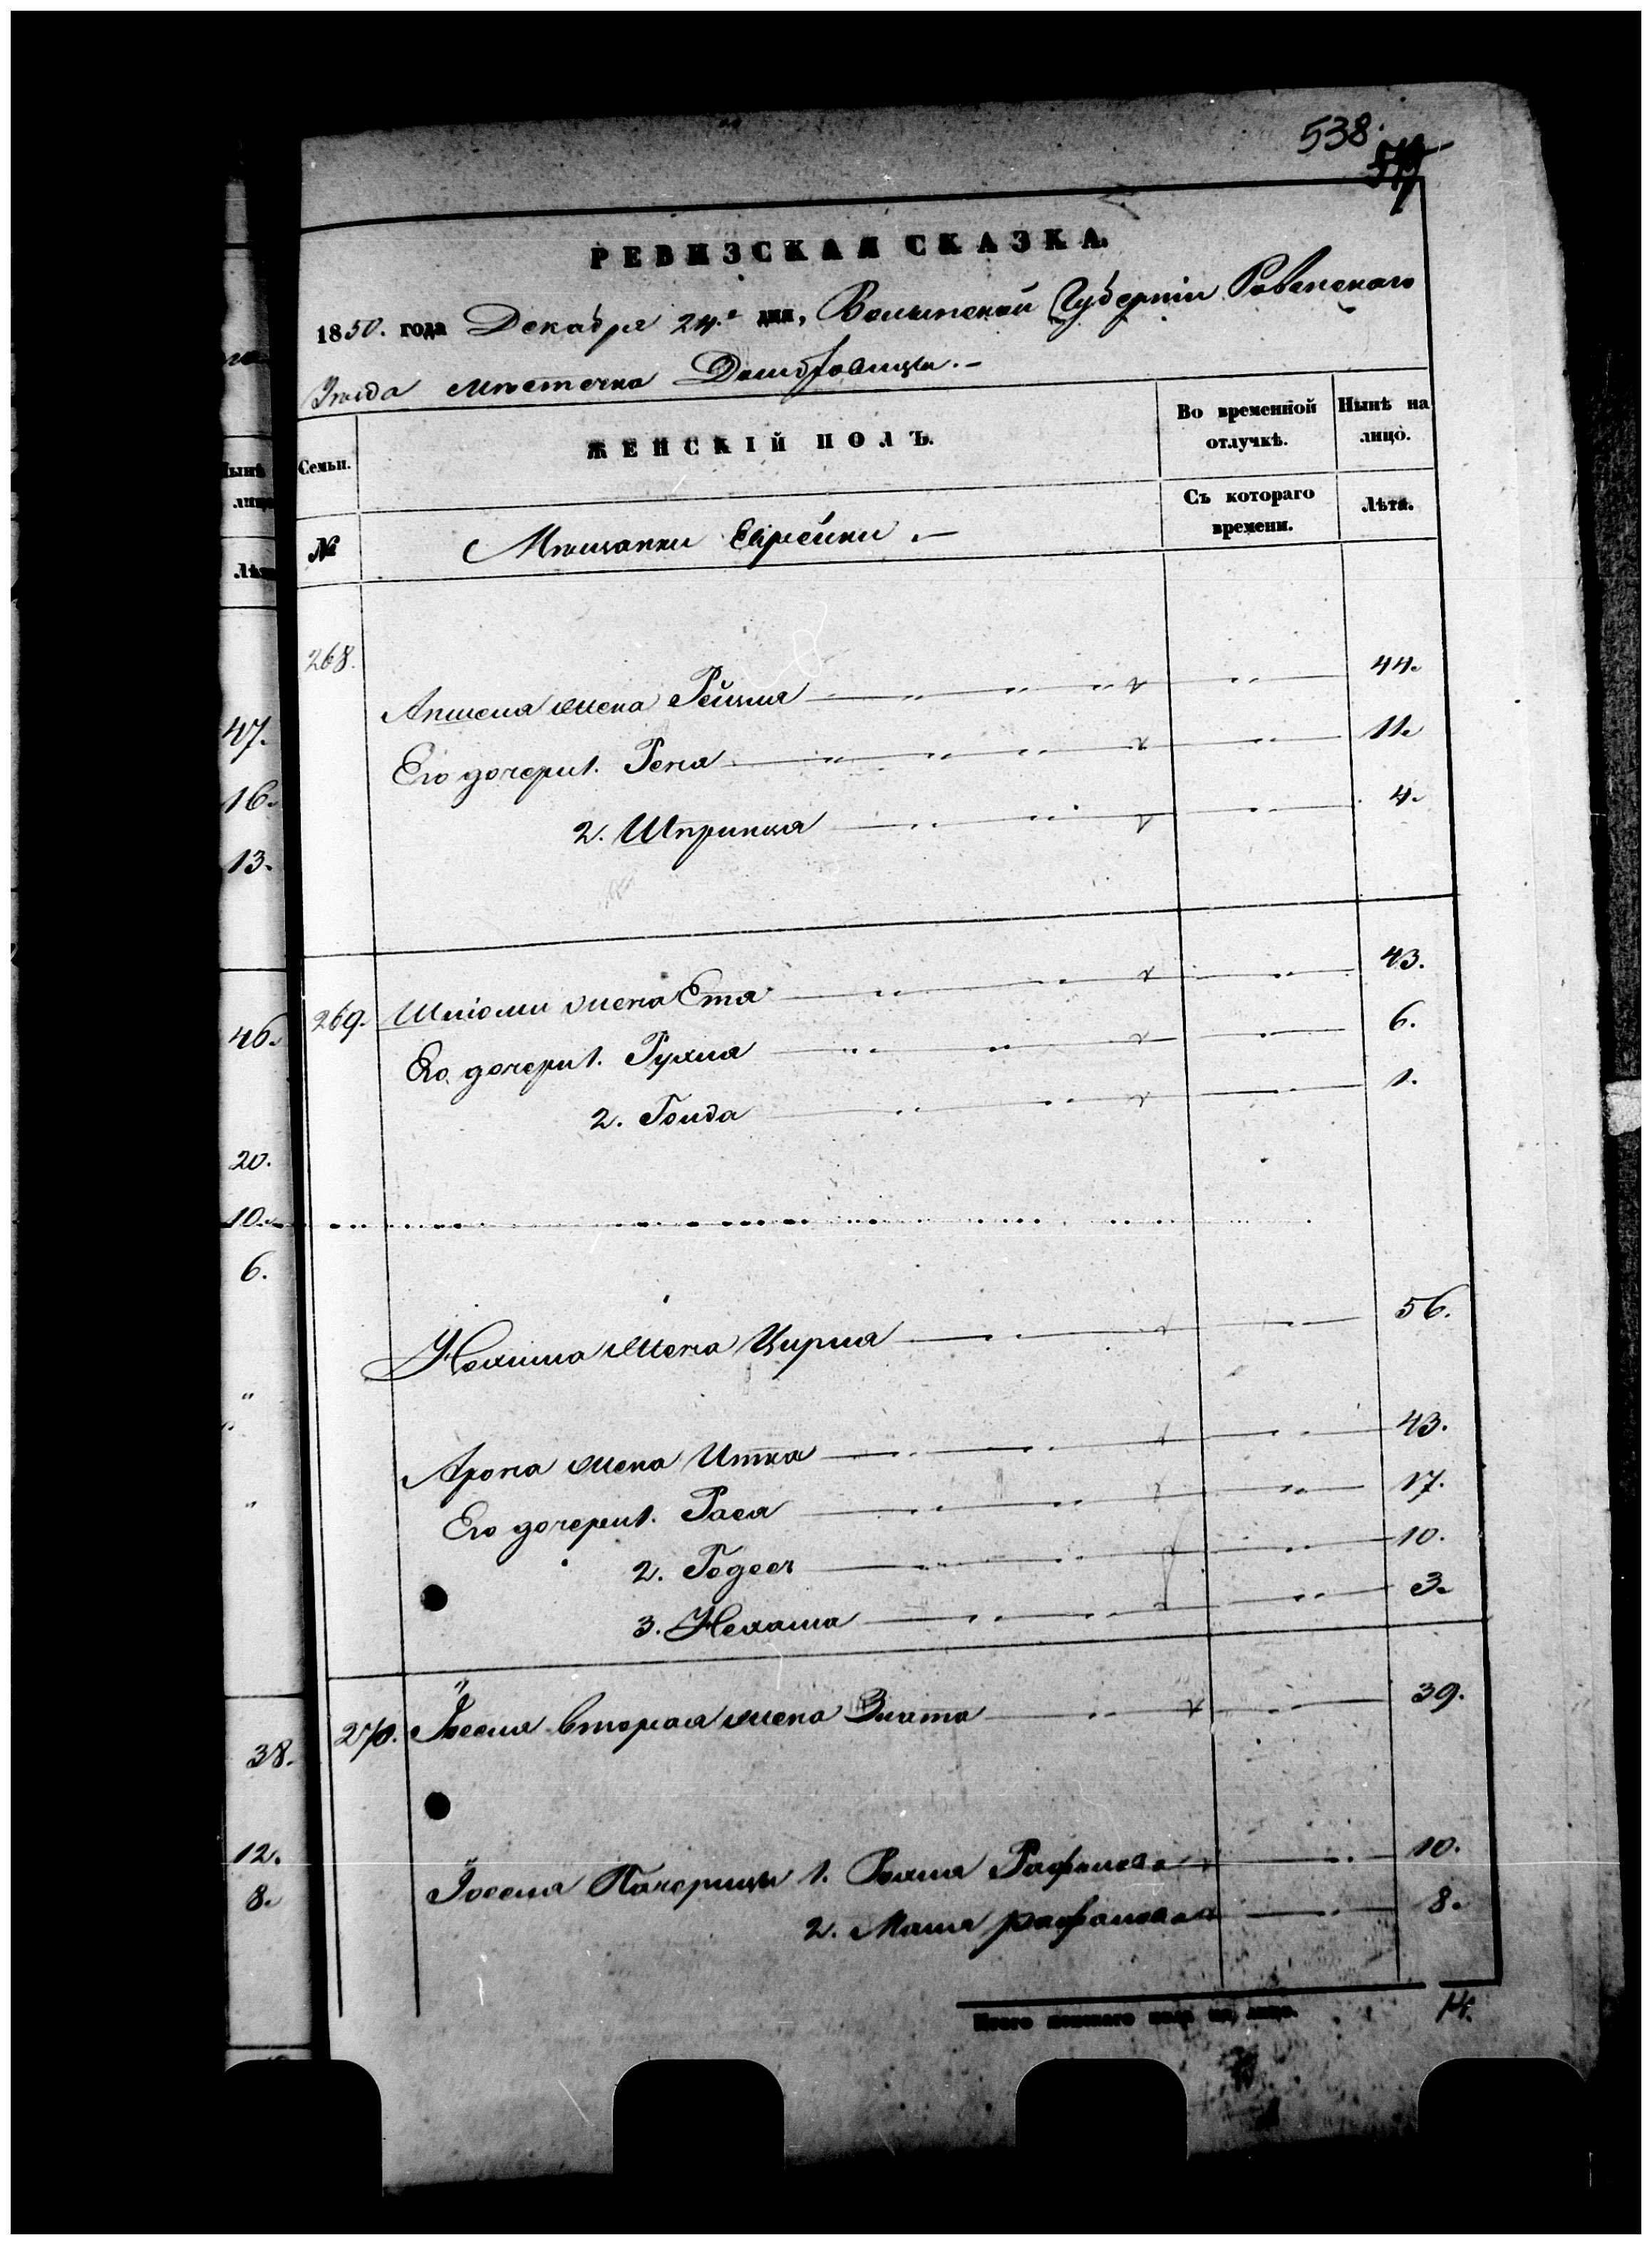 538.
РЕВИЗСКАЯ СКАЗКА.
1850. года Декабря 24.го дня, Волынской Губерніи Ровенскаго
Уѣзда мѣстечка Домбровицы.–
Семьи.
ЖЕНСКІЙ ПОЛЪ.
Во временной отлучкѣ.
Нынѣ на лицо.
№
Мѣщанки Еврейки.–
Съ котораго времени.
Лѣта.
268.
Аншеля жена Рейзля 44.
Его дочери 1. Геня 11.
2. Шпринця 4.
269. Шліомы жена Ета 43.
Его дочери 1. Рухля 6.
2. Голда 1.
жена Цирля 56.
Арона жена Итка 43.
Его дочери 1. Рася 17.
2. 10.
3. Нехама 3.
270. Іоселя вторая жена Злата 39.
Іоселя Падчерицы 1. 10.
2. 8.
Итого женскаго пола на лицо. 14.
Нынѣ
47.
16.
13.
46.
20.
10.
6.
"
"
38.
12.
8.